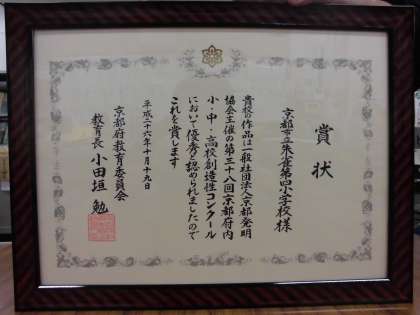 賞状
京都市立朱雀第四小学校様
貴校の作品は一般社団法人京都発明
協会主催の第三十八回京都府内
小・中・高校創造性コンクール
において優秀と認められましたので
これを賞します
平成二十六年十月十九日
京都府教育委員会
教育長 小田垣 勉